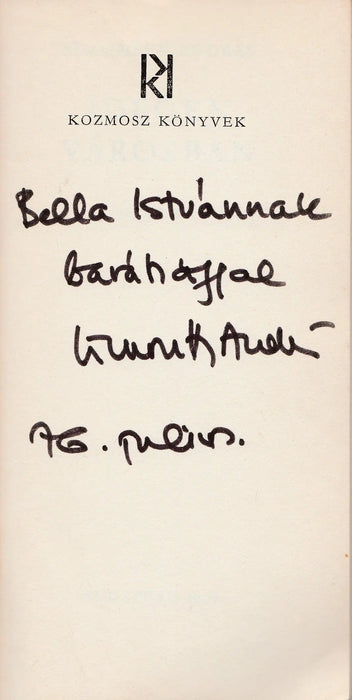 KOZMOSZ KÖNYVEK
Bella Istvánnak
barátsággal
András
76. július.